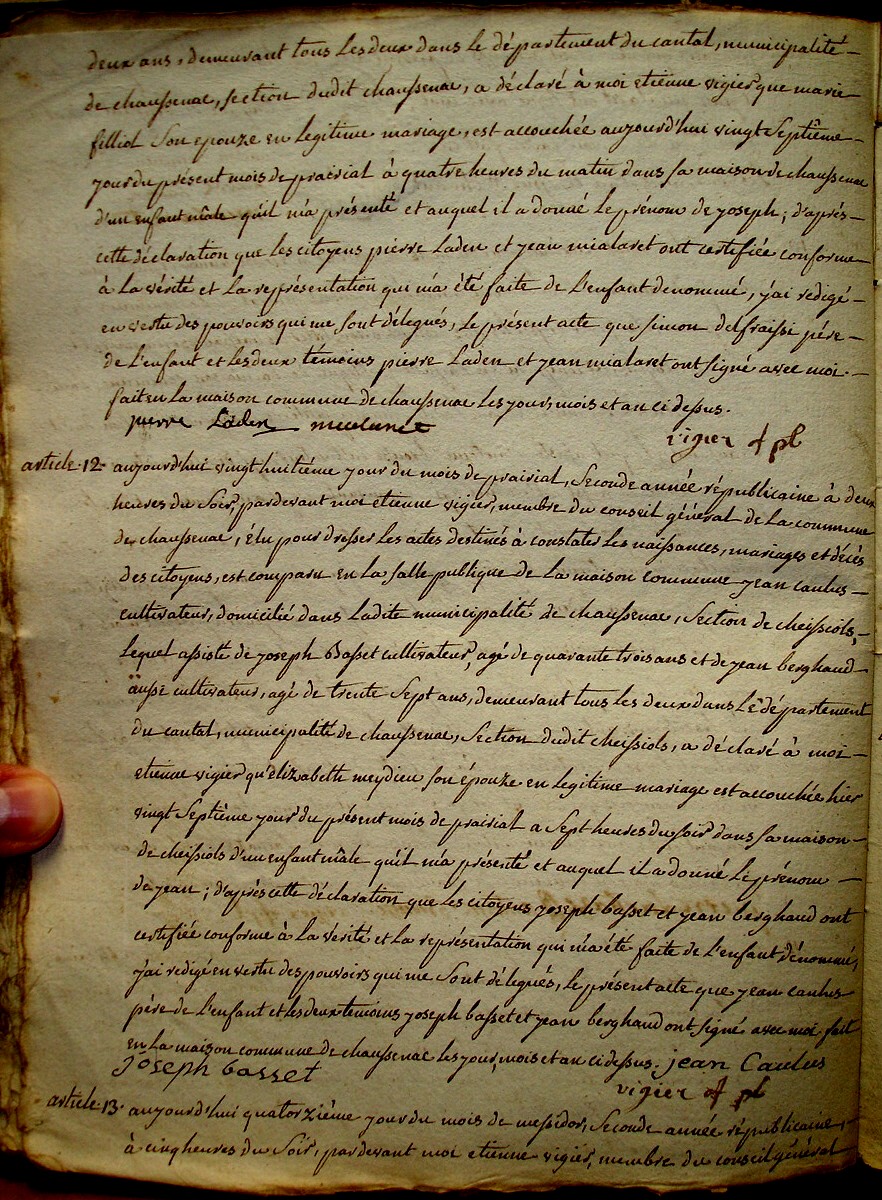 deux ans, demeurant tous les deux dans le département du cantal, municipalité
de chaussenac, section dudit chaussenac, a déclaré à moi etienne vigier que marie
filliol son epouze en legitime mariage, est accouchée aujourd'hui vingt septième
jour du présent mois de prairial à quatre heures du matin dans sa maison de chaussenac
d'un enfant mâle qu'il m'a présenté et auquel il a donné le prénom de joseph; d'après
cette déclaration que les citoyens pierre Laden et jean mialaret ont certifiée conforme
à la vérité et la représentation qui m'a été faite de l'enfant denommé, j'ai redigé
en vertu des pouvoirs qui me sont délegués, le présent acte que simon delfraissi père
de l'enfant et les deux témoins pierre Laden et jean mialaret ont signé avec moi.
fait en la maison commune de chaussenac les jour, mois et an ci dessus.
pierre Laden
vigier
article 12. aujourd'hui vingt huitième jour du mois de prairial, seconde année républicaine à deux
heures du soir, pardevant moi etienne vigier, membre du conseil général de la commune
de chaussenac, élu pour dresser les actes destinés à constater les naissances, mariages et décès
des citoyens, est comparu en la salle publique de la maison commune jean caulus
cultivateur, domicilié dans ladite municipalité de chaussenac, section de cheissiols,
lequel assisté de joseph Basset cultivateur, agé de quarante trois ans et de jean berghaud
aussi cultivateur, agé de trente sept ans, demeurant tous les deux dans le département
du cantal, municipalité de chaussenac, section dudit cheissiols, a déclaré à moi
etienne vigier qu'elizabeth meydieu son épouze en legitime mariage est accouchée hier
vingt septième jour du présent mois de prairial a sept heures du soir dans sa maison
de cheissiols d'un enfant mâle qu'il m'a présenté et auquel il a donné le prénom
de jean; d'après cette déclaration que les citoyens joseph basset et jean berghaud ont
certifiée conforme à la verité et la représentation qui m'a été faite de l'enfant dénommé,
j'ai redigé en vertu des pouvoirs qui me sont délegués, le présent acte que jean caulus
père de l'enfant et les deux temoins joseph basset et jean berghaud ont signé avec moi fait
en la maison commune de chaussenac les jour, mois et an ci dessus. jean Caulus
joseph basset
vigier
article 13. aujourd'hui quatorzième jour du mois de messidor, seconde année républicaine,
à cinq heures du soir, pardevant moi etienne vigier, membre du conseil général